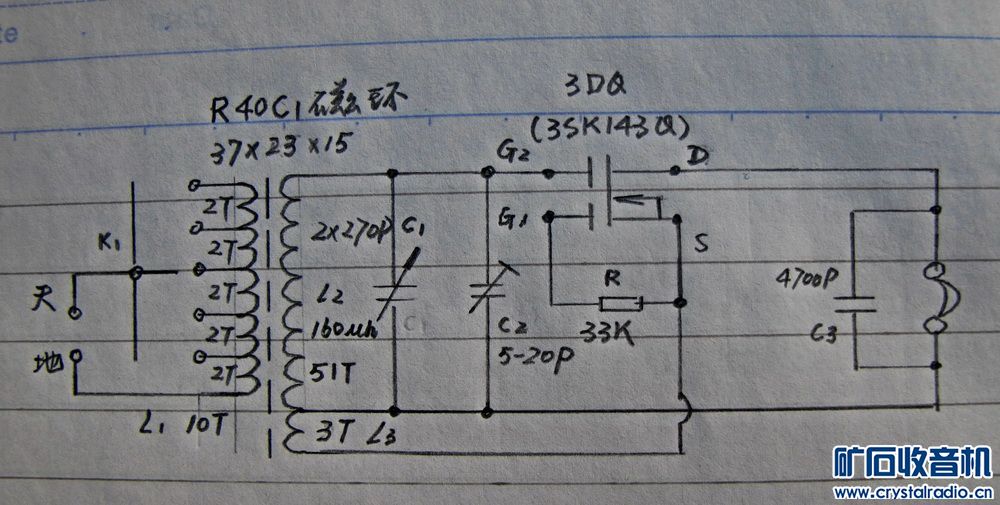 te
R40C1磁环
37×23×15
3DQ
(3SK143Q)
G2
D
G1
S
K1
2T
2T
2T
2T
2T
2×270P C1
L2
160μh
51T
C1
C2
5-20P
R
33K
4700P
C3
天
地
L1 10T
3T L3
矿石收音机
www.crystalradio.cn